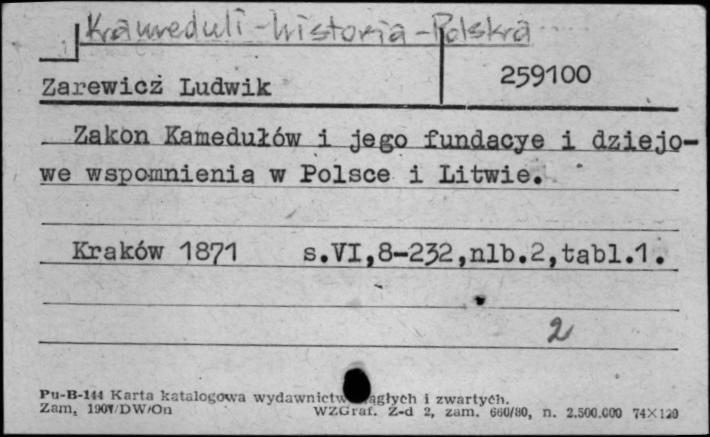 Kameduli - historia - Polska
Zarewicz Ludwik
259100
Zakon Kamedułów i jego fundacye i dziejo-
we wspomnienia w Polsce i Litwie.
Kraków 1871 s.VI,8-232,nlb.2,tabl.1.
2
Pu-B-144 Karta katalogowa wydawnictw ągłych i zwartych.
Zam. 1907/DW/On WZGraf. Z-d 2, zam. 660/80, n. 2.500.000 74×120